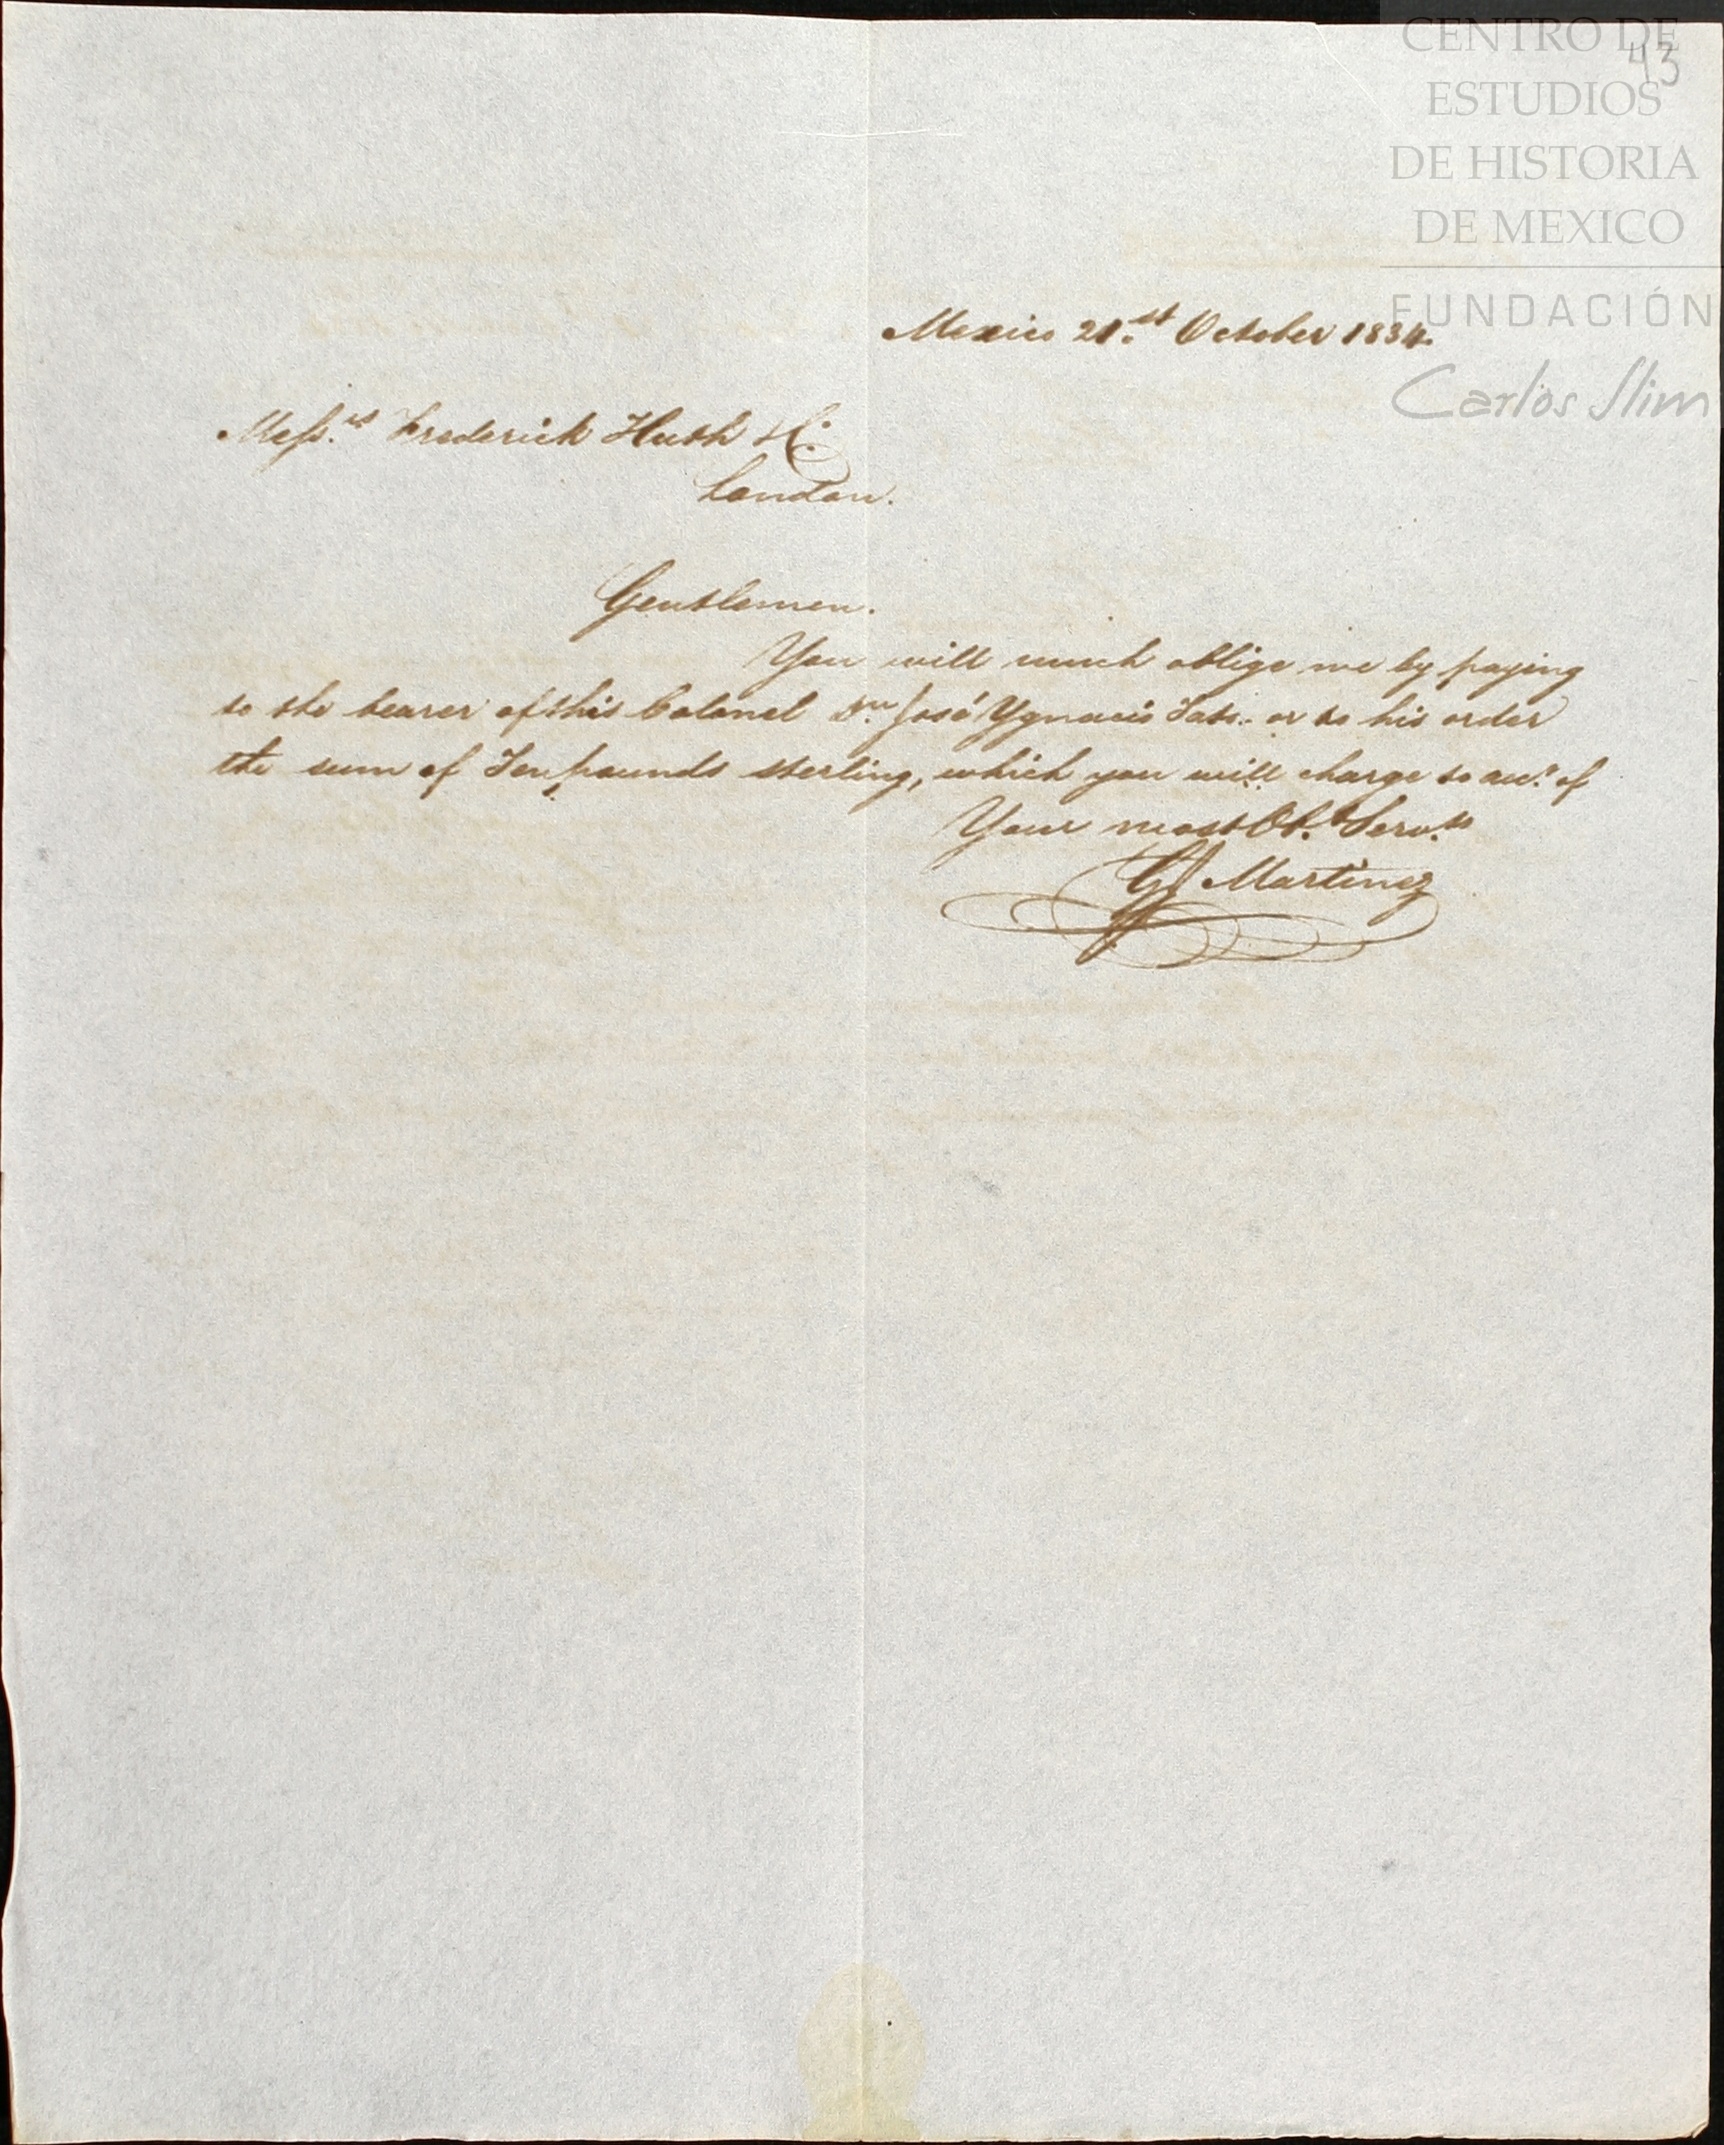 CENTRO DE
43
ESTUDIOS
DE HISTORIA
DE MEXICO
FUNDACIÓN
Carlos Slim
Mexico 21.st October 1834.
Mess.rs Frederick Huth &C.
London.
Gentlemen.
You will much oblige me by paying
to the bearer of this Colonel Dn José Ygnacio or to his order
the sum of Ten pounds sterling, which you will charge to acc.t of
Your most Ob.t Serv.t
Martinez